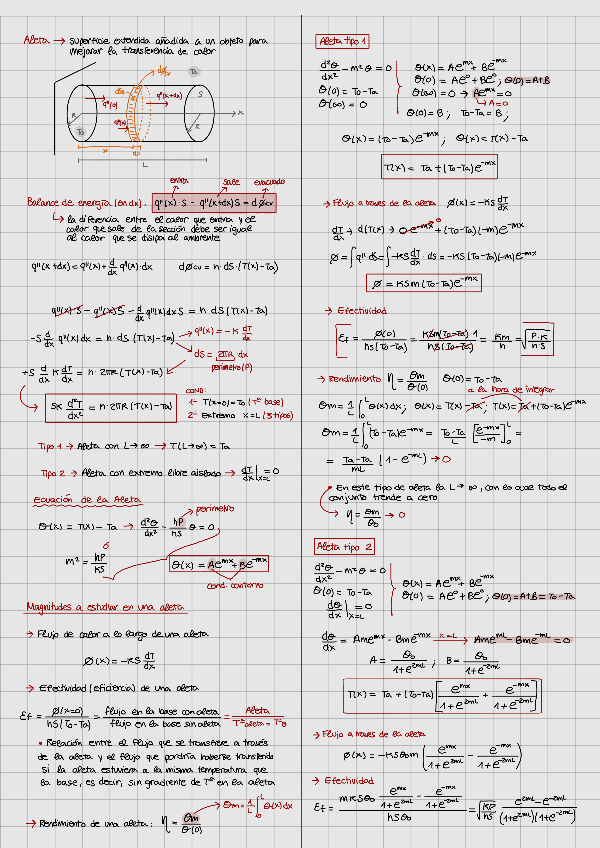 Aleta → superficie extendida añadida a un objeto para
mejorar la transferencia de calor
Ta
S
q''(0)
q''(x+dx)
R
T0
x
dx
L
Balance de energía (en dx): q''(x)·S - q''(x+dx)S = dϕcv
entra
sale
evacuado
↳ la diferencia entre el calor que entra y el
calor que sale de la sección debe ser igual
al calor que se disipa al ambiente
q''(x+dx) = q''(x) + d/dx q''(x)·dx   dϕcv = h·dS·(T(x)-Ta)
q''(x)S - q''(x)S - d/dx q''(x)dx S = h dS (T(x)-Ta)
-S d/dx q''(x)dx = h·dS (T(x)-Ta)
q''(x) = -K dT/dx
dS = 2πR·dx
perímetro (P)
+S d/dx K dT/dx = h·2πR (T(x)-Ta)
SK d²T/dx² = h·2πR (T(x)-Ta)
COND:
1- T(x=0) = T0 (Tª base)
2- Extremo x=L (3 tipos)
Tipo 1 → Aleta con L→∞ → T(L→∞) = Ta
Tipo 2 → Aletas con extremo libre aislado → dT/dx|x=L = 0
Ecuación de la Aleta
perímetro
θ(x) = T(x) - Ta → d²θ/dx² - hP/KS θ = 0
m² = hP/KS
θ(x) = Ae^mx + Be^-mx
cond. contorno
Magnitudes a estudiar en una aleta
→ Flujo de calor a lo largo de una aleta
ϕ(x) = -KS dT/dx
→ Efectividad (eficiencia) de una aleta
Ɛf = ϕ(x=0)/hS(T0-Ta) = flujo en la base con aleta/flujo en la base sin aleta = Aleta/Tª aleta = TªB
• Relación entre el flujo que se transfiere a través
de la aleta y el flujo que podría haberse transferido
si la aleta estuviera a la misma temperatura que
la base, es decir, sin gradiente de Tª en la aleta
→ Rendimiento de una aleta: η = θm/θ(0)
θm = 1/L ∫₀ᴸ θ(x)dx
Aleta tipo 1
d²θ/dx² - m²θ = 0
θ(0) = T0-Ta
θ(∞) = 0
θ(x) = Ae^mx + Be^-mx
θ(0) = Ae⁰ + Be⁰; θ(0) = A+B
θ(∞) = 0 → Ae^mx = 0
↳ A=0
θ(0) = B; T0-Ta = B;
θ(x) = (T0-Ta)e^-mx; θ(x) = T(x)-Ta
T(x) = Ta + (T0-Ta)e^-mx
→ Flujo a través de la aleta   ϕ(x) = -KS dT/dx
dT/dx → d(T(x)) → 0·e^-mx + (T0-Ta)(-m)e^-mx
ϕ = ∫q'' dS = ∫-KS dT/dx · dS = -KS (T0-Ta)(-m)e^-mx
ϕ = KSm(T0-Ta)e^-mx
→ Efectividad
Ɛf = ϕ(0)/hS(T0-Ta) = KSm(T0-Ta)·1/hS(T0-Ta) = Km/h = √P·K/h·S
→ Rendimiento η = θm/θ(0)   θ(0) = T0-Ta
a la hora de integrar
θm = 1/L ∫₀ᴸ θ(x)dx; θ(x) = T(x)-Ta; T(x) = Ta+(T0-Ta)e^-mx
θm = 1/L ∫₀ᴸ (T0-Ta)e^-mx = T0-Ta/L [e^-mx/-m]₀ᴸ =
= T0-Ta/mL (1-e^-mL) → 0
• En este tipo de aleta la L→∞, con lo cual todo el
conjunto tiende a cero
→ η = θm/θ0 → 0
Aleta tipo 2
d²θ/dx² - m²θ = 0
θ(0) = T0-Ta
dθ/dx|x=L = 0
θ(x) = Ae^mx + Be^-mx
θ(0) = Ae⁰ + Be⁰; θ(0) = A+B = T0-Ta
dθ/dx = Ame^mx - Bme^-mx x=L → Ame^mL - Bme^-mL = 0
A = θ0/1+e^2mL ; B = θ0/1+e^-2mL
T(x) = Ta + (T0-Ta)[e^mx/1+e^2mL + e^-mx/1+e^-2mL]
→ Flujo a través de la aleta
ϕ(x) = -KSθ0m (e^mx/1+e^2mL - e^-mx/1+e^-2mL)
→ Efectividad
Ɛf = mKSθ0 e^mx/1+e^2mL - e^-mx/1+e^-2mL/hSθ0 = √KP/hS e^2mL-e^-2mL/(1+e^2mL)(1+e^-2mL)